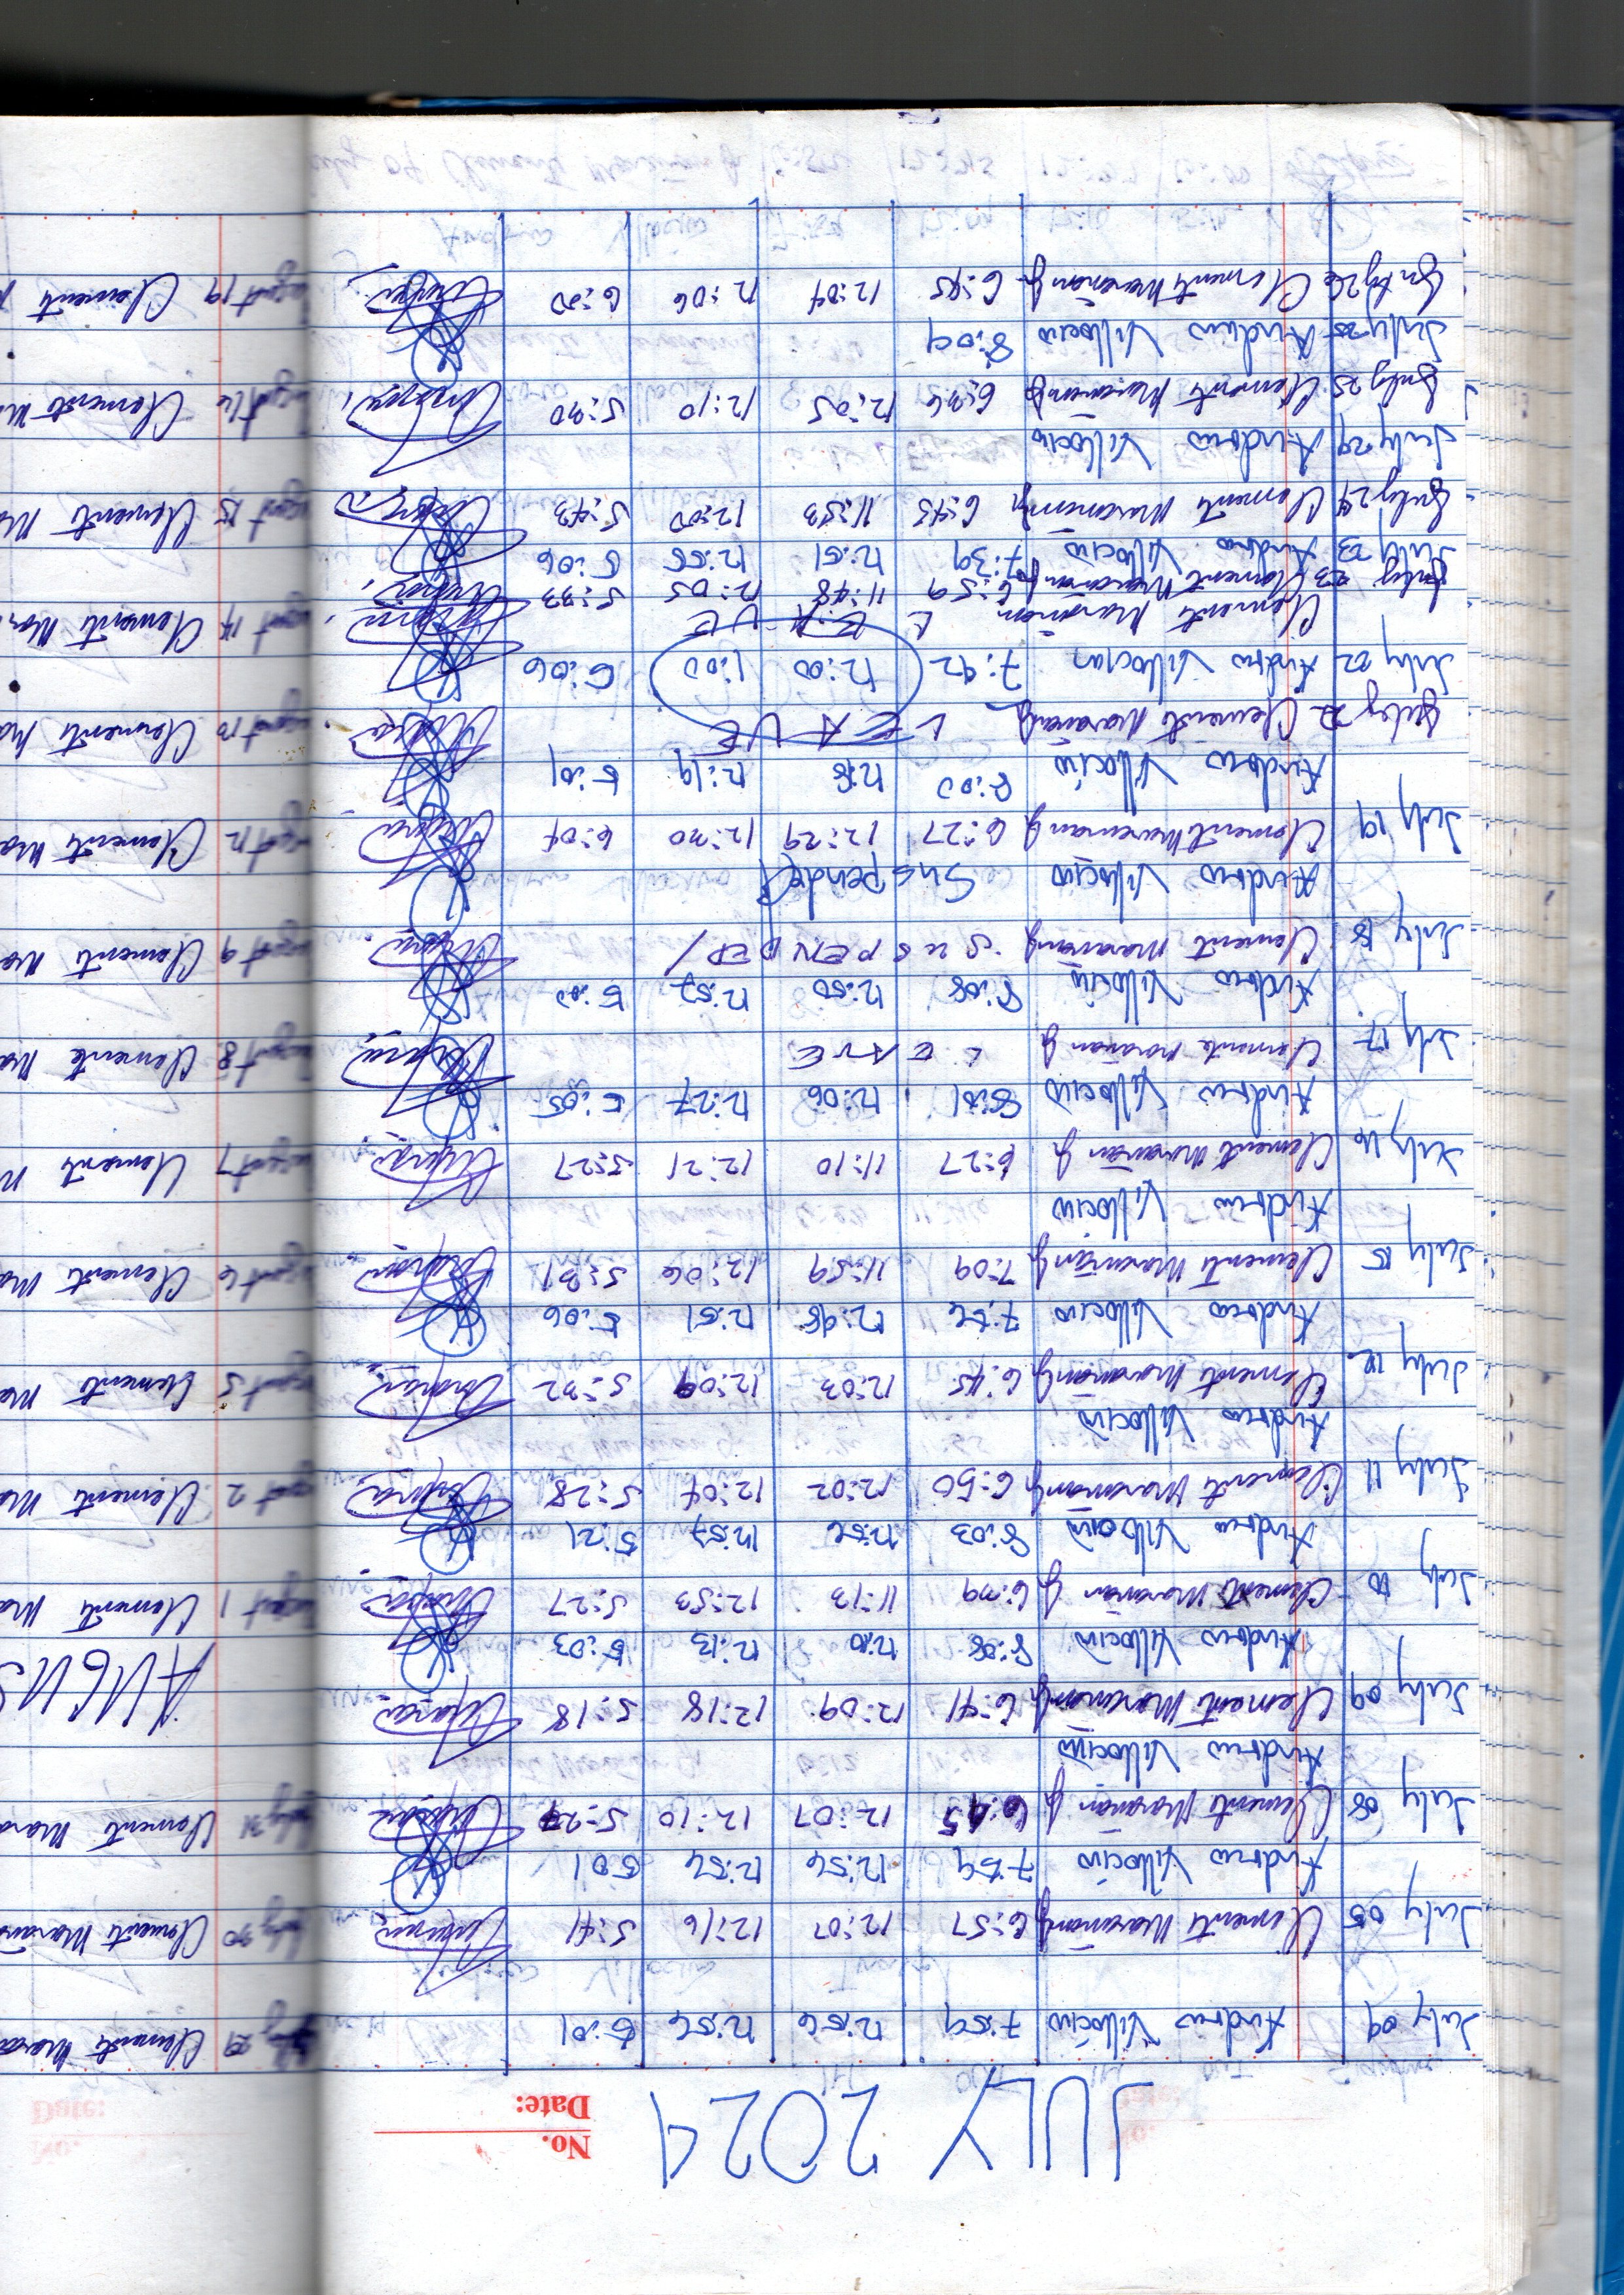 JULY 2024
No.
Date:
July 04 Andrew Villocin 7:59 12:56 12:56 5:01
July 05 Clemente Maranan Jr 6:57 12:07 12:16 5:41
Andrew Villocin 7:59 12:56 12:56 5:01
July 08 Clemente Maranan Jr 6:45 12:07 12:10 5:27
Andrew Villocin
July 09 Clemente Maranan Jr 6:41 12:09 12:18 5:18
Andrew Villocin 8:08 12:10 12:13 5:03
July 10 Clemente Maranan Jr 6:39 11:13 12:53 5:27
Andrew Villocin 8:03 12:56 12:57 5:21
July 11 Clemente Maranan Jr 6:50 12:02 12:04 5:28
Andrew Villocin
July 12 Clemente Maranan Jr 6:45 12:03 12:09 5:32
Andrew Villocin 7:56 12:48 12:51 5:06
July 15 Clemente Maranan Jr 7:09 11:59 12:06 5:31
Andrew Villocin
July 16 Clemente Maranan Jr 6:27 11:10 12:21 5:27
Andrew Villocin 8:01 12:06 12:27 5:05
July 17 Clemente Maranan Jr LEAVE
Andrew Villocin 8:08 12:50 12:57 5:00
July 18 Clemente Maranan Jr SUSPENDED /
Andrew Villocin Suspended
July 19 Clemente Maranan Jr 6:27 12:29 12:30 6:04
Andrew Villocin 8:00 12:18 12:19 5:01
July 22 Clemente Maranan Jr LEAVE
July 22 Andrew Villocin 7:42 12:00 1:00 5:06
Clemente Maranan LEAVE
July 23 Clemente Maranan Jr 6:59 11:48 12:05 5:33
July 23 Andrew Villocin 7:39 12:51 12:55 5:06
July 24 Clemente Maranan Jr 6:43 11:53 12:00 5:43
July 24 Andrew Villocin
July 25 Clemente Maranan Jr 6:36 12:05 12:10 5:30
July 25 Andrew Villocin 8:09
July 26 Clemente Maranan Jr 6:45 12:04 12:06 6:00
29 Clemente Mara
July 30 Clemente Maran
July 31 Clemente Mara
AUGUS
August 1 Clemente Ma
August 2 Clemente Ma
August 5 Clemente Ma
August 6 Clemente Ma
August 7 Clemente M
August 8 Clemente Ma
August 9 Clemente Ma
August 12 Clemente Ma
August 13 Clemente Ma
August 14 Clemente Mar
August 15 Clemente Ma
August 16 Clemente Ma
August 19 Clemente